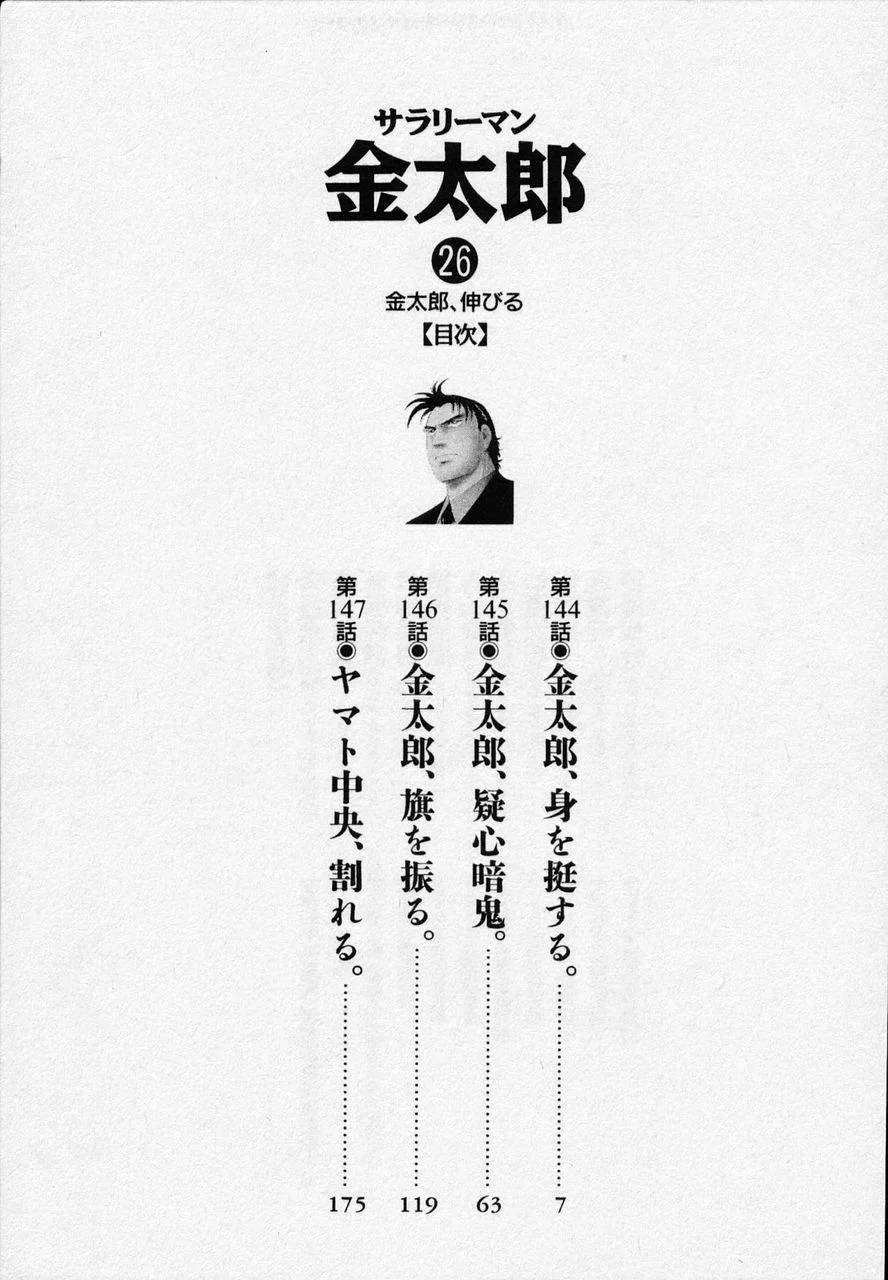 サラリーマン
金太郎
26
金太郎、伸びる
【目次】
第144話◉金太郎、身を挺する。……………………7
第145話◉金太郎、疑心暗鬼。……………………63
第146話◉金太郎、旗を振る。……………………119
第147話◉ヤマト中央、割れる。……………………175